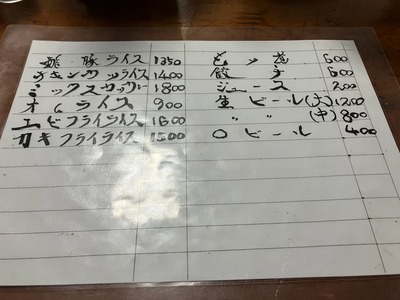 酢豚ライス 1350
チキンカツライス 1400
1800
オムライス 900
エビフライライス 1600
カキフライライス 1500
もつ煮 600
餃子 600
ジュース 200
生ビール(大) 1200
〃 〃 (中) 800
○ビール 400